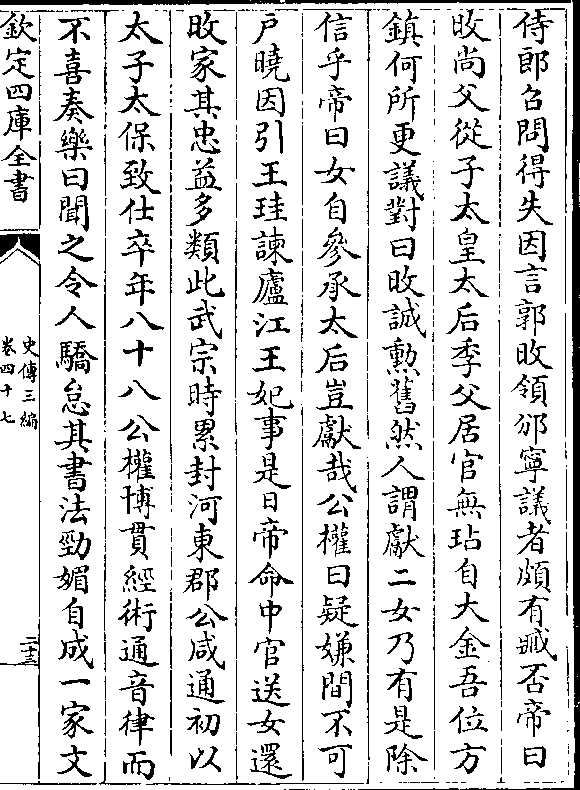 侍郎召問得失因言郭旼領邠寧議者頗有臧否帝曰
旼尚父從子太皇太后季父居官無玷自大金吾位方
鎮何所更議對曰旼誠勲舊然人謂獻二女乃有是除
信乎帝曰女自參承太后豈獻哉公權曰疑嫌間不可
户曉因引王珪諫廬江王妃事是日帝命中官送女還
旼家其忠益多類此武宗時累封河東郡公咸通初以
太子太保致仕卒年八十八公權博貫經術通音律而
不喜奏樂曰聞之令人驕怠其書法勁媚自成一家文
欽定四庫全書
史傳三編
卷四十七
二十三